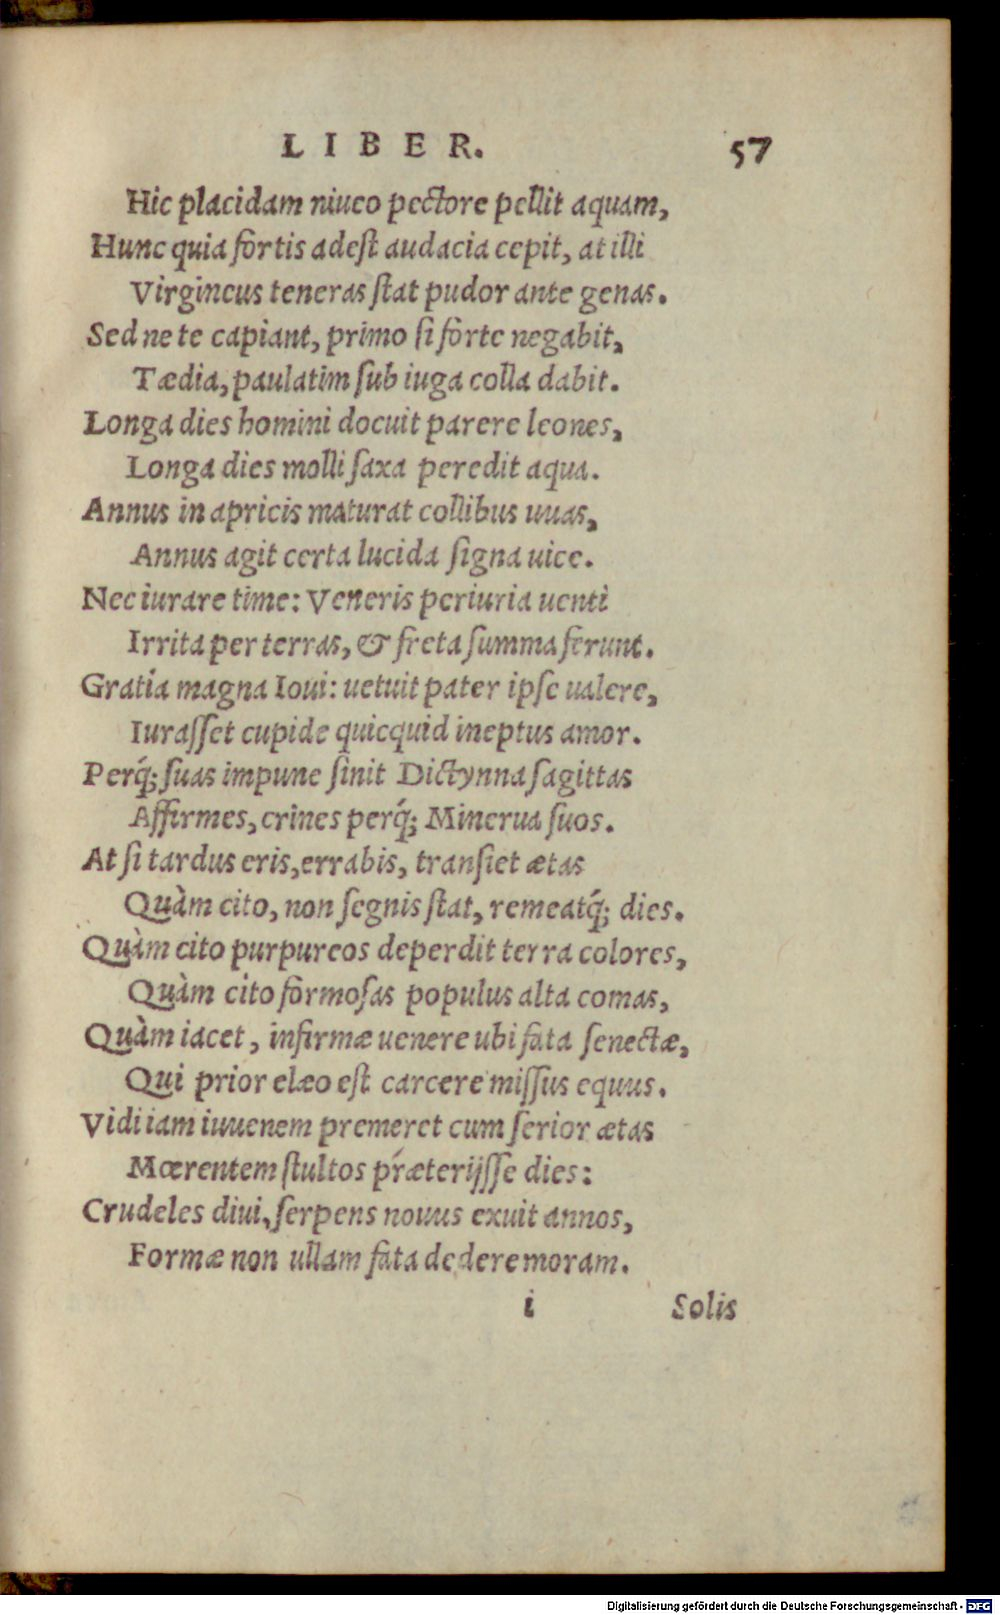 LIBER. 57
Hic placidam niueo pectore pellit aquam,
Hunc quia fortis adest audacia cepit, at illi
Virgineus teneras stat pudor ante genas.
Sed ne te capiant, primo si forte negabit,
Tædia, paulatim sub iuga colla dabit.
Longa dies homini docuit parere leones,
Longa dies molli saxa peredit aqua.
Annus in apricis maturat collibus uuas,
Annus agit certa lucida signa uice.
Nec iurare time: Veneris periuria uenti
Irrita per terras, & freta summa ferunt.
Gratia magna Ioui: uetuit pater ipse ualere,
Iurasset cupide quicquid ineptus amor.
Perq́; suas impune sinit Dictynna sagittas
Affirmes, crines perq́; Minerua suos.
At si tardus eris, errabis, transiet ætas
Quàm cito, non segnis stat, remeatq́; dies.
Quàm cito purpureos deperdit terra colores,
Quàm cito formosas populus alta comas,
Quàm iacet, infirmæ uenere ubi fata senectæ,
Qui prior elæo est carcere missus equus.
Vidi iam iuuenem premeret cum serior ætas
Mœrentem stultos præterijsse dies:
Crudeles diui, serpens nouus exuit annos,
Formæ non ullam fata dedere moram.
i Solis
Digitalisierung gefördert durch die Deutsche Forschungsgemeinschaft - DFG